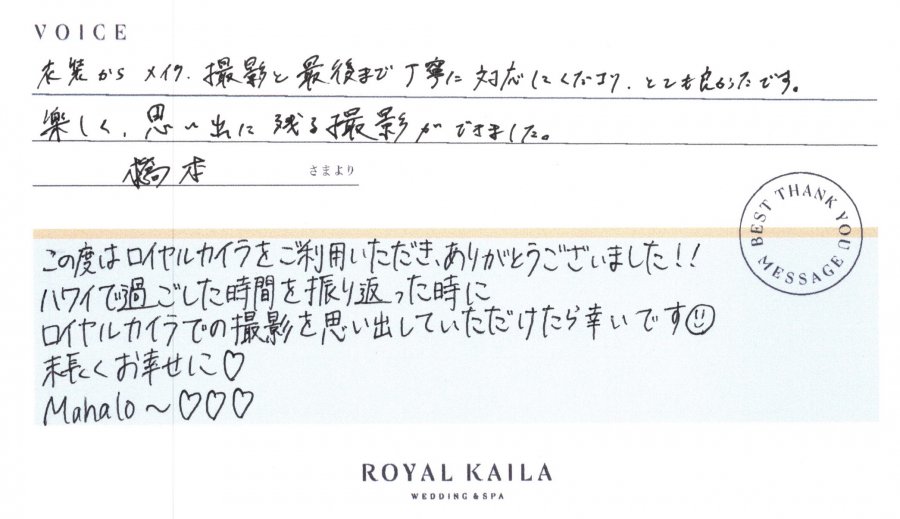 VOICE
衣装からメイク、撮影と最後まで丁寧に対応してくださり、とても良かったです。
楽しく、思い出に残る撮影ができました。
橋本 さまより
BEST THANK YOU MESSAGE
この度はロイヤルカイラをご利用いただき、ありがとうございました!!
ハワイで過ごした時間を振り返った時に
ロイヤルカイラでの撮影を思い出していただけたら幸いです☺
末長くお幸せに♡
Mahalo〜♡♡♡
ROYAL KAILA
WEDDING & SPA